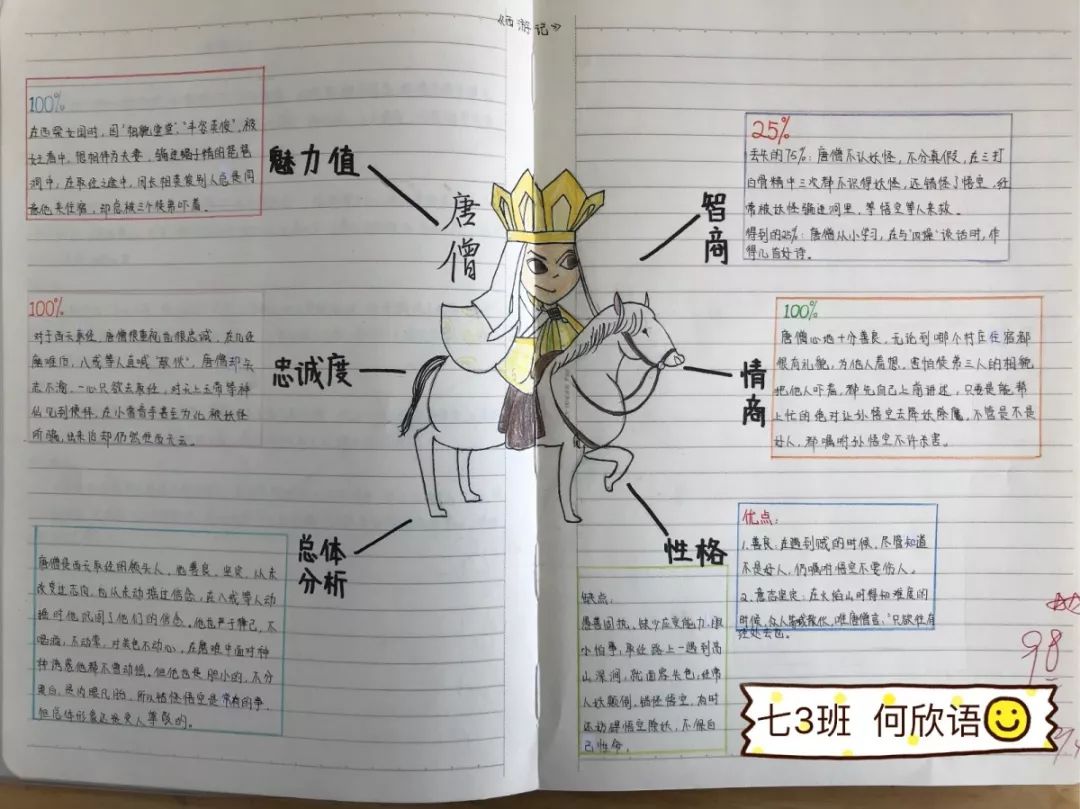 《西游记》
100%
在西梁女国时，因"相貌堂堂"、"丰姿英俊"，被
女王看中，想招作为夫妻，骗进蝎子精的琵琶
洞中，在取经之途中，因长相英俊别人总是同
意他来住宿，却总被三个徒弟吓着。
魅力值
唐
僧
100%
对于西天取经，唐僧很重视也很忠诚，在几经
磨难后，八戒等人直喊"散伙"，唐僧却矢
志不渝，一心只欲去取经，对天上玉帝等神
仙见到便拜，在小雷音寺甚至为此被妖怪
所骗，出来后却仍然往西天去。
忠诚度
总体
分析
唐僧是西天取经的领头人，他善良、坚定，从未
改变过志向，也从未动摇过信念，在八戒等人动
摇时他巩固了他们的信念。他也严于律己，不
喝酒，不动荤，对美色不动心，在磨难中面对种
种诱惑他都不曾动摇。但他也是胆小的，不分
黑白，是肉眼凡胎，所以错怪悟空是常有的事，
但总体形象还是受人尊敬的。
智
商
25%
丢失的75%：唐僧不认妖怪，不分真假，在三打
白骨精中三次都不识得妖怪，还错怪了悟空，经
常被妖怪骗进洞里，等悟空等人来救。
得到的25%：唐僧从小学习，在与"四操"谈话时，作
得几首好诗。
情
商
100%
唐僧心地十分善良，无论到哪个村庄住宿都
很有礼貌，为他人着想，害怕徒弟三人的相貌
把他人吓着，都先自己上前讲述，只要是能帮
上忙的绝对让孙悟空去降妖除魔，不管是不是
好人，都嘱咐孙悟空不许杀害。
性格
优点：
1.善良：在遇到贼的时候，尽管知道
不是好人，仍嘱咐悟空不要伤人。
2.意志坚定：在火焰山时得知难度的
时候，众人皆喊散伙，唯唐僧言，"只欲往有
经处去也。
缺点：
愚善固执，缺少应变能力，胆
小怕事，取经路上一遇到高
山深涧，就面容失色，经常
人妖颠倒，错怪悟空，有时
还妨碍悟空除妖，不保自
己性命。
98
七3班 何欣语